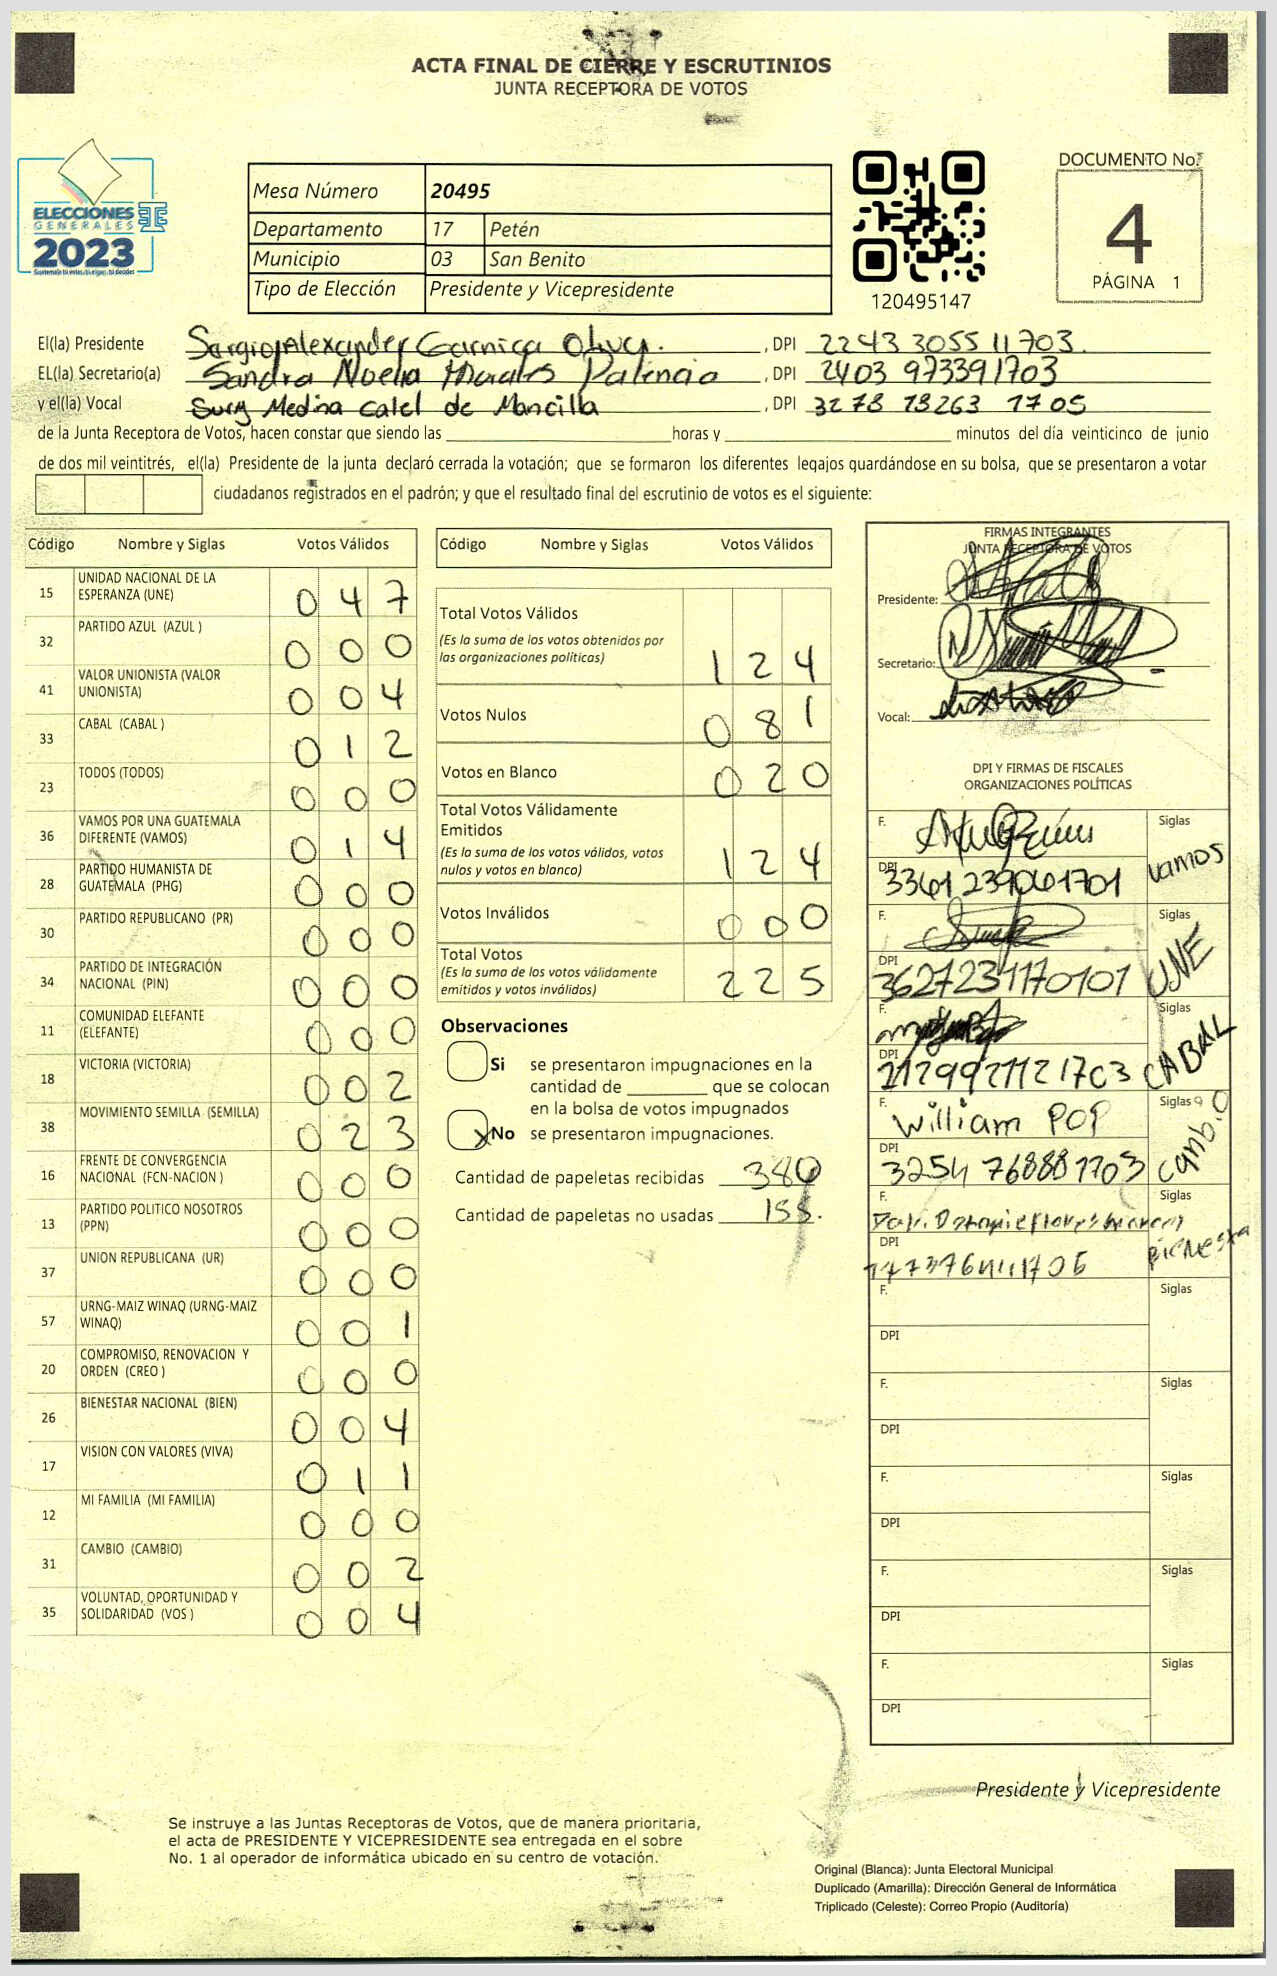 ACTA FINAL DE CIERRE Y ESCRUTINIOS
JUNTA RECEPTORA DE VOTOS
ELECCIONES
GENERALES
2023
Mesa Número 20495
Departamento 17 Petén
Municipio 03 San Benito
Tipo de Elección Presidente y Vicepresidente
120495147
DOCUMENTO No.
4
PÁGINA 1
El(la) Presidente Sergio Alexander Garnica , DPI 2243 3055 11703
EL(la) Secretario(a) Sandra Noelia Morales Palencia , DPI 2403 973391703
y el(la) Vocal Sury Medina Calel de Mancilla , DPI 3278 78263 1705
de la Junta Receptora de Votos, hacen constar que siendo las horas y minutos del día veinticinco de junio
de dos mil veintitrés, el(la) Presidente de la junta declaró cerrada la votación; que se formaron los diferentes legajos guardándose en su bolsa, que se presentaron a votar
ciudadanos registrados en el padrón; y que el resultado final del escrutinio de votos es el siguiente:
Código Nombre y Siglas Votos Válidos
15 UNIDAD NACIONAL DE LA ESPERANZA (UNE) 047
32 PARTIDO AZUL (AZUL ) 000
41 VALOR UNIONISTA (VALOR UNIONISTA) 004
33 CABAL (CABAL ) 012
23 TODOS (TODOS) 000
36 VAMOS POR UNA GUATEMALA DIFERENTE (VAMOS) 014
28 PARTIDO HUMANISTA DE GUATEMALA (PHG) 000
30 PARTIDO REPUBLICANO (PR) 000
34 PARTIDO DE INTEGRACIÓN NACIONAL (PIN) 000
11 COMUNIDAD ELEFANTE (ELEFANTE) 000
18 VICTORIA (VICTORIA) 002
38 MOVIMIENTO SEMILLA (SEMILLA) 023
16 FRENTE DE CONVERGENCIA NACIONAL (FCN-NACION ) 000
13 PARTIDO POLITICO NOSOTROS (PPN) 000
37 UNION REPUBLICANA (UR) 000
57 URNG-MAIZ WINAQ (URNG-MAIZ WINAQ) 001
20 COMPROMISO, RENOVACION Y ORDEN (CREO ) 000
26 BIENESTAR NACIONAL (BIEN) 004
17 VISION CON VALORES (VIVA) 011
12 MI FAMILIA (MI FAMILIA) 000
31 CAMBIO (CAMBIO) 002
35 VOLUNTAD, OPORTUNIDAD Y SOLIDARIDAD (VOS ) 004
Código Nombre y Siglas Votos Válidos
Total Votos Válidos
(Es la suma de los votos obtenidos por
las organizaciones políticas) 124
Votos Nulos 081
Votos en Blanco 020
Total Votos Válidamente
Emitidos
(Es la suma de los votos válidos, votos
nulos y votos en blanco) 124
Votos Inválidos 000
Total Votos
(Es la suma de los votos válidamente
emitidos y votos inválidos) 225
Observaciones
Si se presentaron impugnaciones en la
cantidad de que se colocan
en la bolsa de votos impugnados
X No se presentaron impugnaciones.
Cantidad de papeletas recibidas 380
Cantidad de papeletas no usadas 155.
FIRMAS INTEGRANTES
JUNTA RECEPTORA DE VOTOS
Presidente:
Secretario:
Vocal:
DPI Y FIRMAS DE FISCALES
ORGANIZACIONES POLÍTICAS
F. Siglas Vamos
DPI 3361239061701
F. Siglas UNE
DPI 3627231170101
F. Siglas CABAL
DPI 2129921121703
F. William POP Siglas Cambio
DPI 3254 768881703
F. Siglas Bienestar
DPI
F. Siglas
DPI
F. Siglas
DPI
F. Siglas
DPI
F. Siglas
DPI
F. Siglas
DPI
Presidente y Vicepresidente
Se instruye a las Juntas Receptoras de Votos, que de manera prioritaria,
el acta de PRESIDENTE Y VICEPRESIDENTE sea entregada en el sobre
No. 1 al operador de informática ubicado en su centro de votación.
Original (Blanca): Junta Electoral Municipal
Duplicado (Amarilla): Dirección General de Informática
Triplicado (Celeste): Correo Propio (Auditoría)